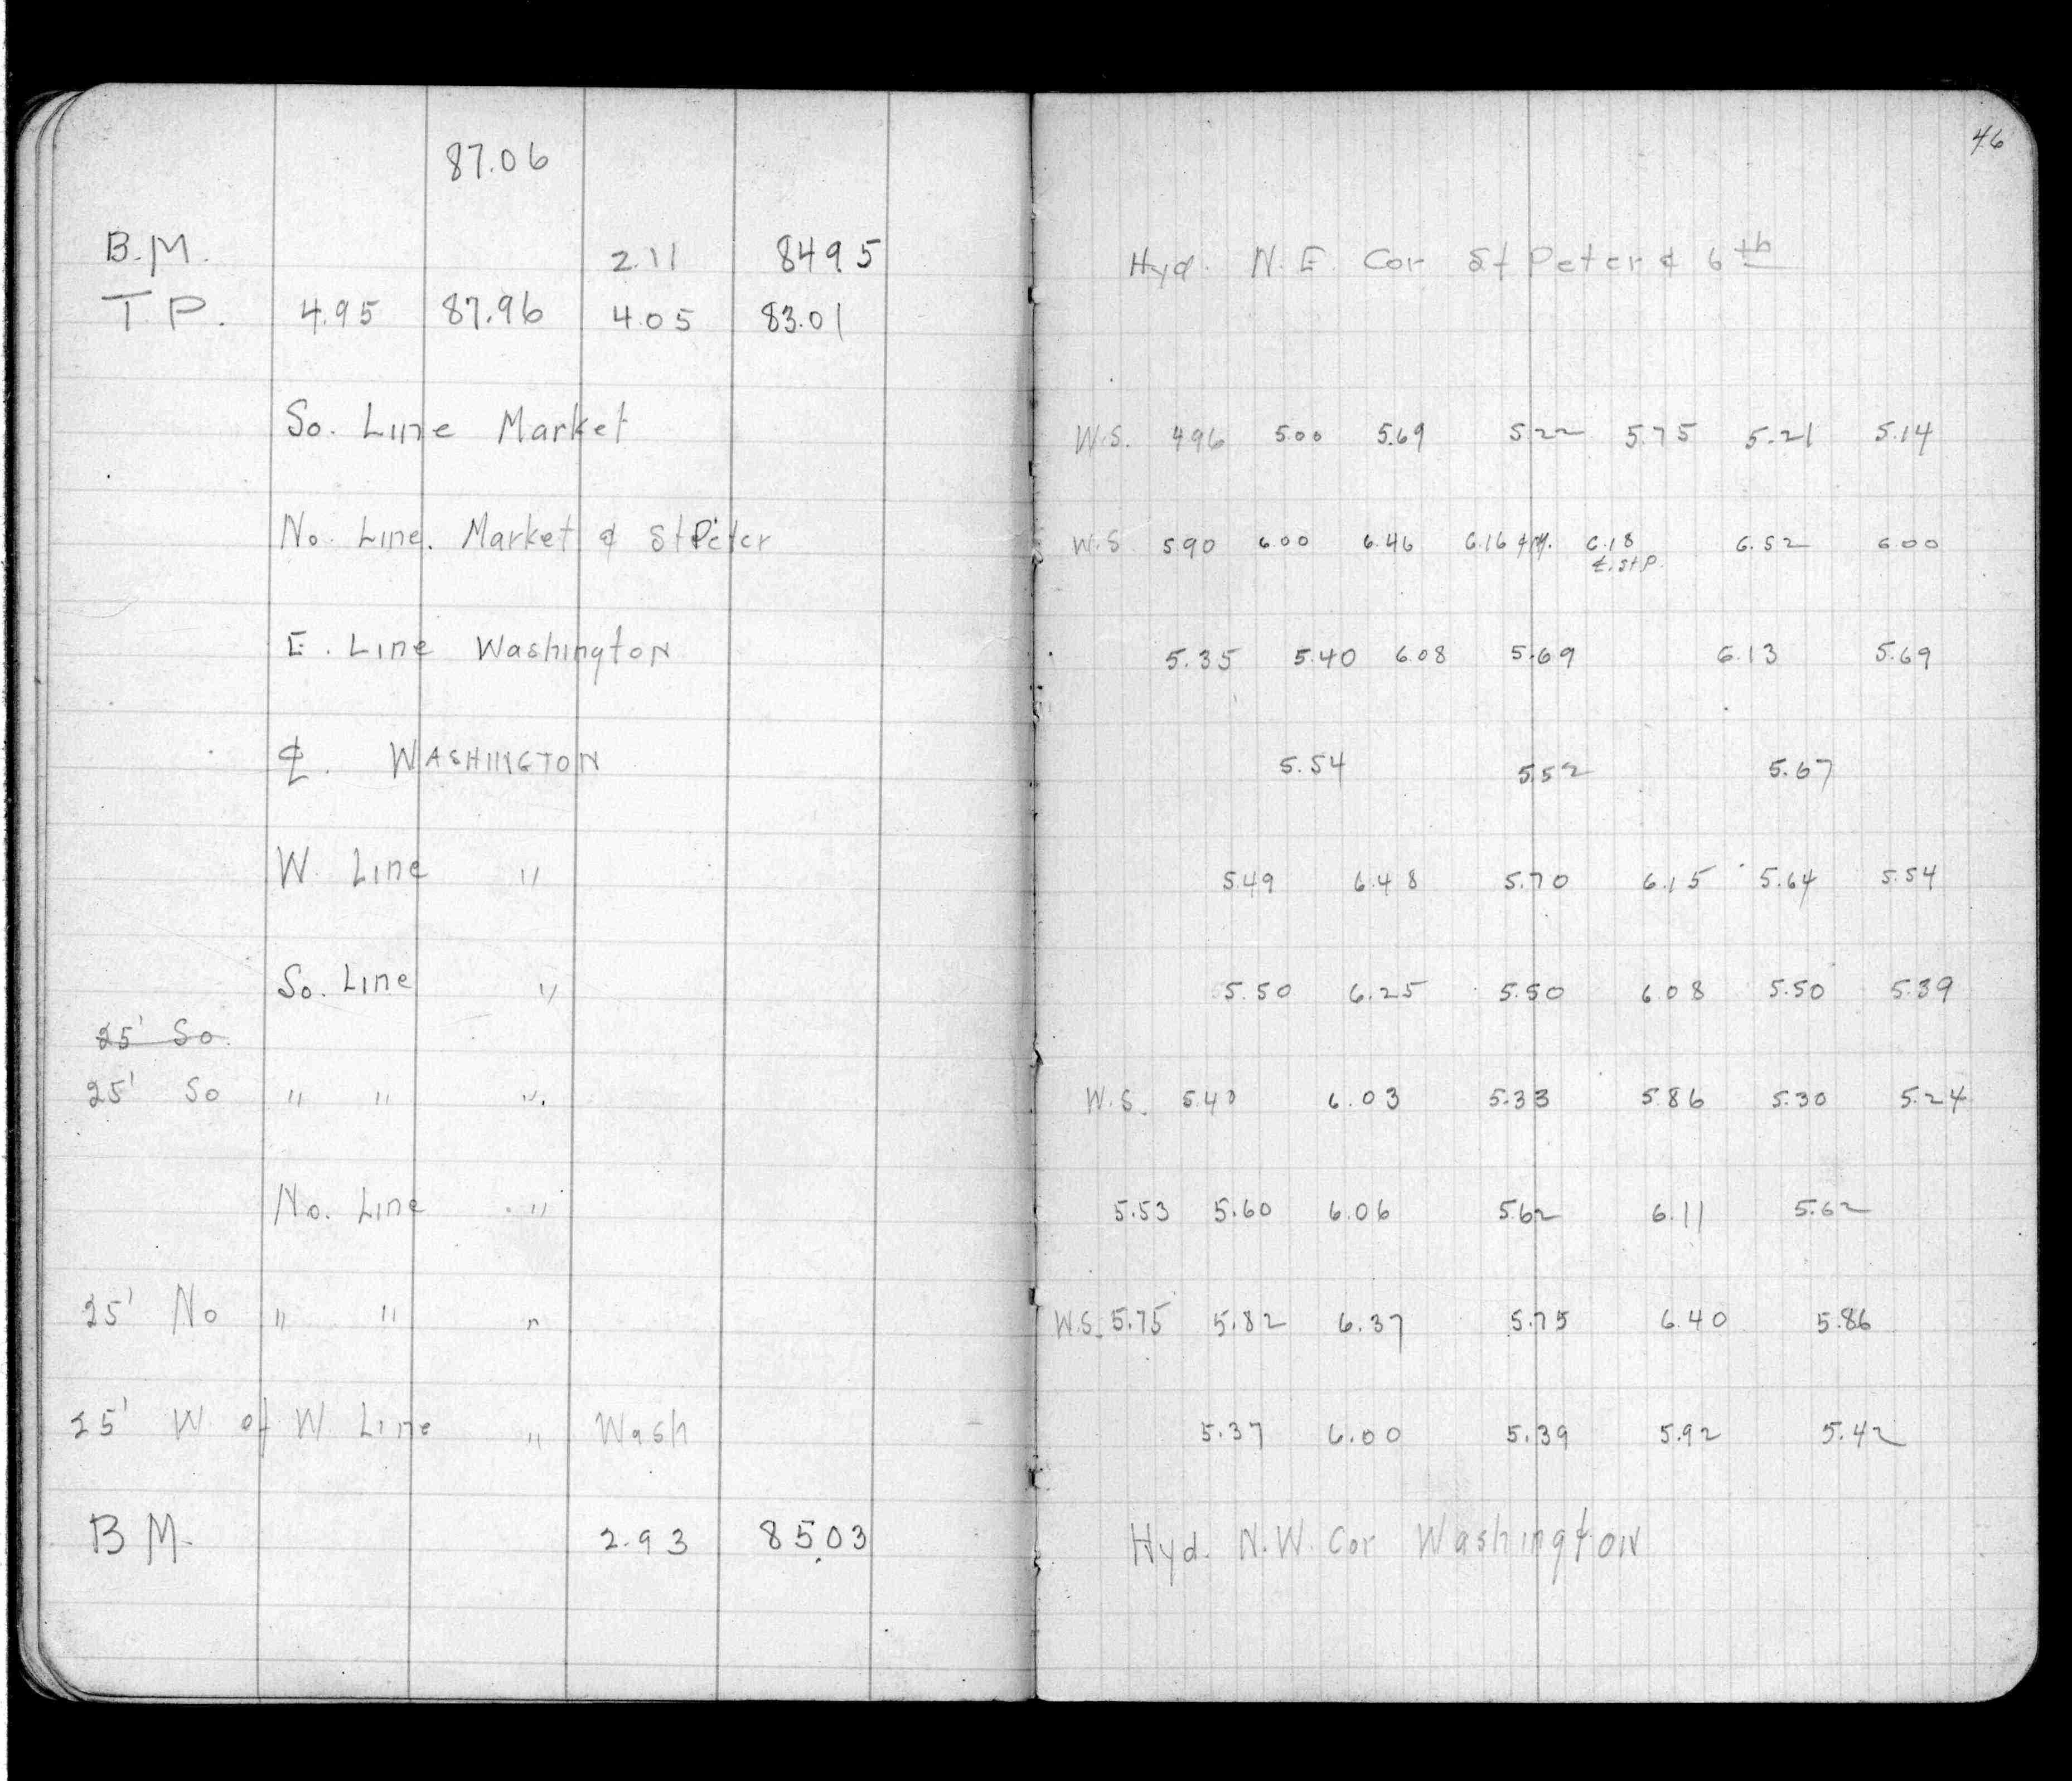 46
87.06
B.M. 2.11 8495 Hyd. N.E. Cor St Peter & 6th
T.P. 4.95 87.96 4.05 83.01
So. Line Market W.S. 496 5.00 5.69 522 5.75 5.21 5.14
No. Line. Market & St Peter W.S. 590 6.00 6.46 6.16 ¢ M. 6.18 6.52 6.00
¢. St P.
E. Line Washington 5.35 5.40 6.08 5.69 6.13 5.69
¢. WASHINGTON 5.54 552 5.67
W. Line " 5.49 6.48 5.70 6.15 5.64 5.54
So. Line " 5.50 6.25 5.50 6.08 5.50 5.39
25' So.
25' So " " ". W.S. 5.40 6.03 5.33 5.86 5.30 5.24
No. Line " 5.53 5.60 6.06 5.62 6.11 5.62
25' No " " " W.S. 5.75 5.82 6.37 5.75 6.40 5.86
25' W. of W Line " Wash 5.37 6.00 5.39 5.92 5.42
B M. 2.93 85.03 Hyd. N.W. Cor Washington